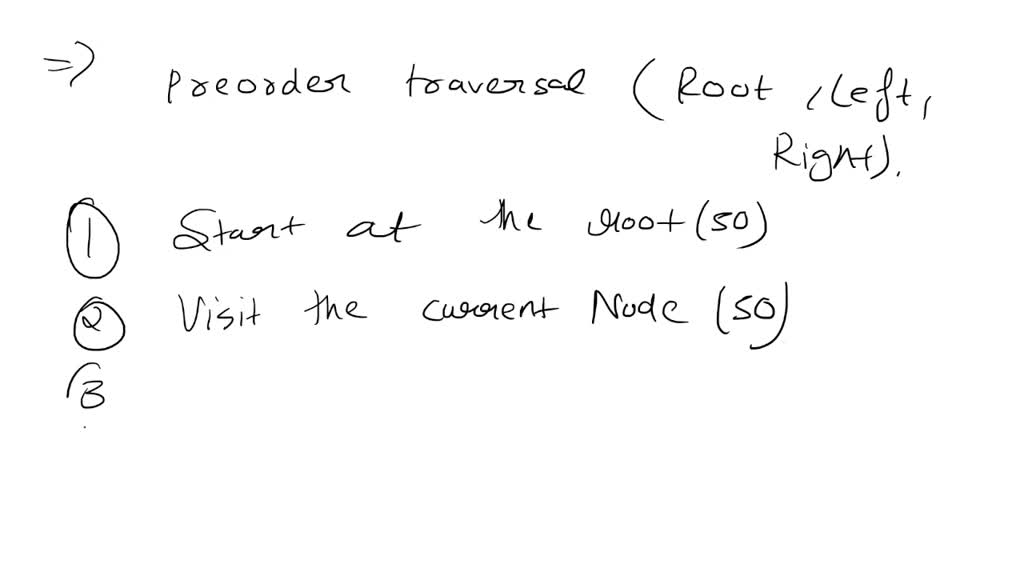 => Preorder traversal (Root, Left,
Right).
1 Start at the root (50)
2 Visit the current Node (50)
3